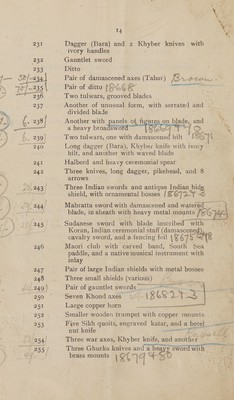 14
231 Dagger (Bara) and 2 Khyber knives with
ivory handles
232 Gauntlet sword
233 Ditto
234 Pair of damascened axes (Talur) Brown
235 Pair of ditto 18668
236 Two tulwars, grooved blades
237 Another of unusual form, with serrated and
divided blade
6 238 Another with panels of figures on blade, and
a heavy broadsword
239 Two tulwars, one with damascened hilt
240 Long dagger (Bara), Khyber knife with ivory
hilt, and another with waved blade
241 Halberd and heavy ceremonial spear
242 Three knives, long dagger, pikehead, and 8
arrows
243 Three Indian swords and antique Indian big
shield, with ornamental bosses
244 Mahratta sword with damascened and watered
blade, in sheath with heavy metal mounts
245 Sudanese sword with blade inscribed with
Koran, Indian ceremonial staff (damascened)
cavalry sword, and a fencing foil
246 Maori club with carved band, South Sea
paddle, and a native musical instrument with
inlay
247 Pair of large Indian shields with metal bosses
248 Three small shields (various)
249 Pair of gauntlet swords
250 Seven Khond axes
251 Large copper horn
252 Smaller wooden trumpet with copper mounts
253 Five Sikh quoits, engraved katar, and a betel
nut knife
254 Three war axes, Khyber knife, and another
255 Three Ghurka knives and a heavy sword with
brass mounts